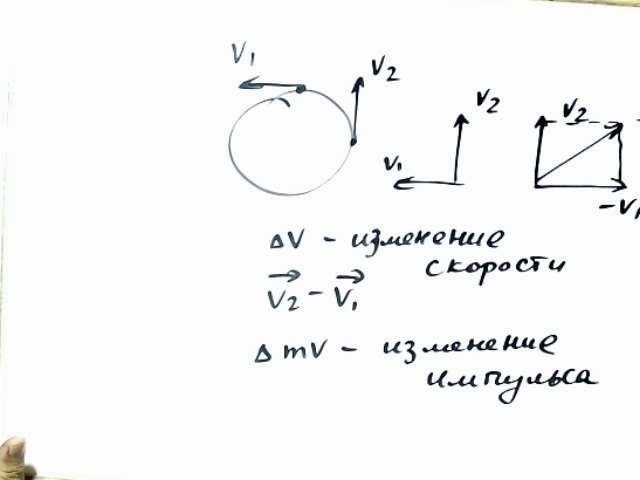 V₁
V₂
V₂
V₁
V₂
-V₁
ΔV - изменение
скорости
V₂ - V₁
ΔmV - изменение
импульса